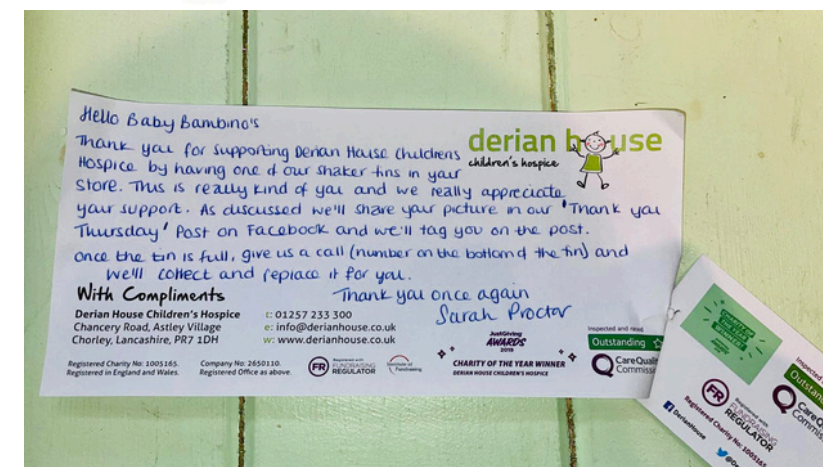 Hello Baby Bambino's
Thank you for supporting Derian House Childrens
Hospice by having one of our shaker tins in your
store. This is really kind of you and we really appreciate
your support. As discussed we'll share your picture in our 'Thank you
Thursday' Post on Facebook and we'll tag you on the post.
Once the tin is full, give us a call (number on the bottom of the tin) and
we'll collect and replace it for you.
Thank you once again
Sarah Proctor
derian house
children's hospice
With Compliments
Derian House Children's Hospice
Chancery Road, Astley Village
Chorley, Lancashire, PR7 1DH
t: 01257 233 300
e: info@derianhouse.co.uk
w: www.derianhouse.co.uk
Registered Charity No: 1005165.
Registered in England and Wales.
Company No: 2650110.
Registered Office as above.
FR
Registered with
FUNDRAISING
REGULATOR
Institute of
Fundraising
JustGiving
AWARDS
2019
CHARITY OF THE YEAR WINNER
DERIAN HOUSE CHILDREN'S HOSPICE
Inspected and rated
Outstanding
CareQual
Commissi
CHARITY OF
THE YEAR
FR
Registered with
FUNDRAISING
REGULATOR
Registered Charity No: 1005165.
DerianHouse
Inspected
Outstan
CareQ
Commis